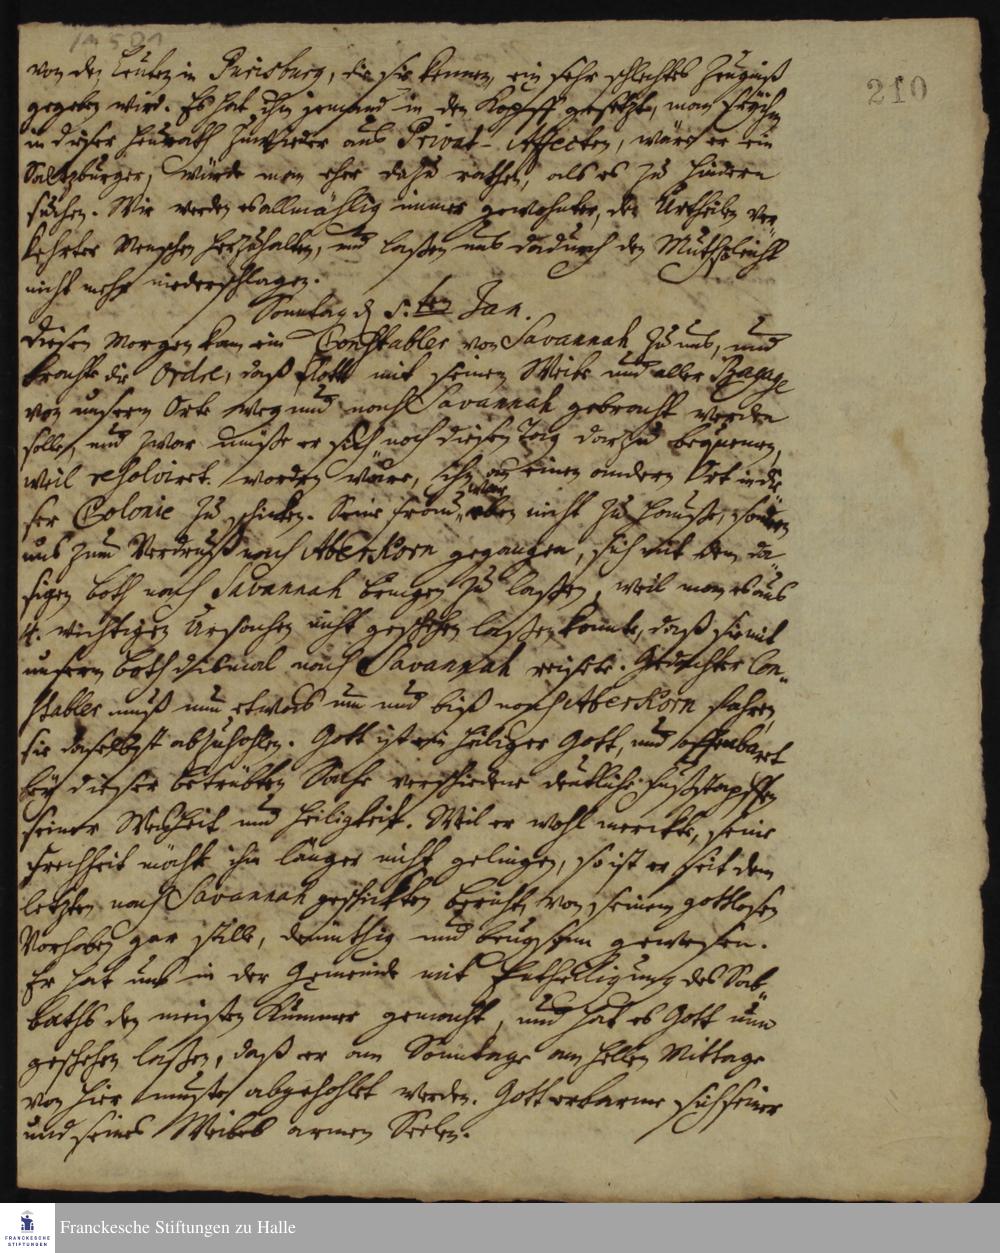 210
von den Leuten in Purisburg, die sie kennen, ein sehr schlechtes Zeugniß
gegeben wird. Es hat ihm jemand in den Kopff gesetzt, man sey ihm
in dieser Heurath zuwider aus Privat-Affecten, wäre er ein
Saltzburger, würde man eher dazu rathen, als es zu hindern
suchen. Wir werden es allmählig immer gewohnter, die Urtheilen ver-
kehrter Menschen herzuhalten, und laßen uns dadurch den Muth leicht
nicht mehr niederschlagen.
Sonntag d 5.ten Jan.
Diesen Morgen kam ein Constabler von Savannah zu uns, und
brachte die Ordre, daß Rott mit seinem Weibe und aller Bagage
von unserm Orte weg und nach Savannah gebracht werden
solle, und zwar müße er sich noch diesen Tag darzu bequemen,
weil resolvirt worden wäre, ihn an einen andern Ort in die-
ser Colonie zu schicken. Seine Frau war eben nicht zu Hauße, sondern
uns zum Verdruß nach Aberkorn gegangen, sich mit dem da-
sigen Both nach Savannah bringen zu laßen, weil man es aus
4. wichtigen Ursachen nicht geschehen laßen konnte, daß sie mit
unserm Both dismal nach Savannah reisete. Gedachter Con-
stabler muß nun etwas um und biß nach Aberkorn fahren,
sie daselbst abzuhohlen. Gott ist ein heiliger Gott, und offenbaret
bey dieser betrübten Sache verschiedene deutliche Fußstapffen
seiner Weisheit und Heiligkeit. Weil er wohl merckte, seine
Frechheit möchte ihm länger nicht gelingen, so ist er seit dem
letzten nach Savannah geschickten Bericht von seinem gottlosen
Vorhaben gar stille, demüthig und beugsam gewesen.
Er hat uns in der Gemeinde mit Entheiligung des Sab-
baths den meisten Kummer gemacht, und hat es Gott nun
geschehen laßen, daß er am Sonntage am hellen Mittage
von hier muste abgehohlet werden. Gott erbarme sich seiner
und seines Weibes armen Seelen.
FRANCKESCHE STIFTUNGEN
Franckesche Stiftungen zu Halle